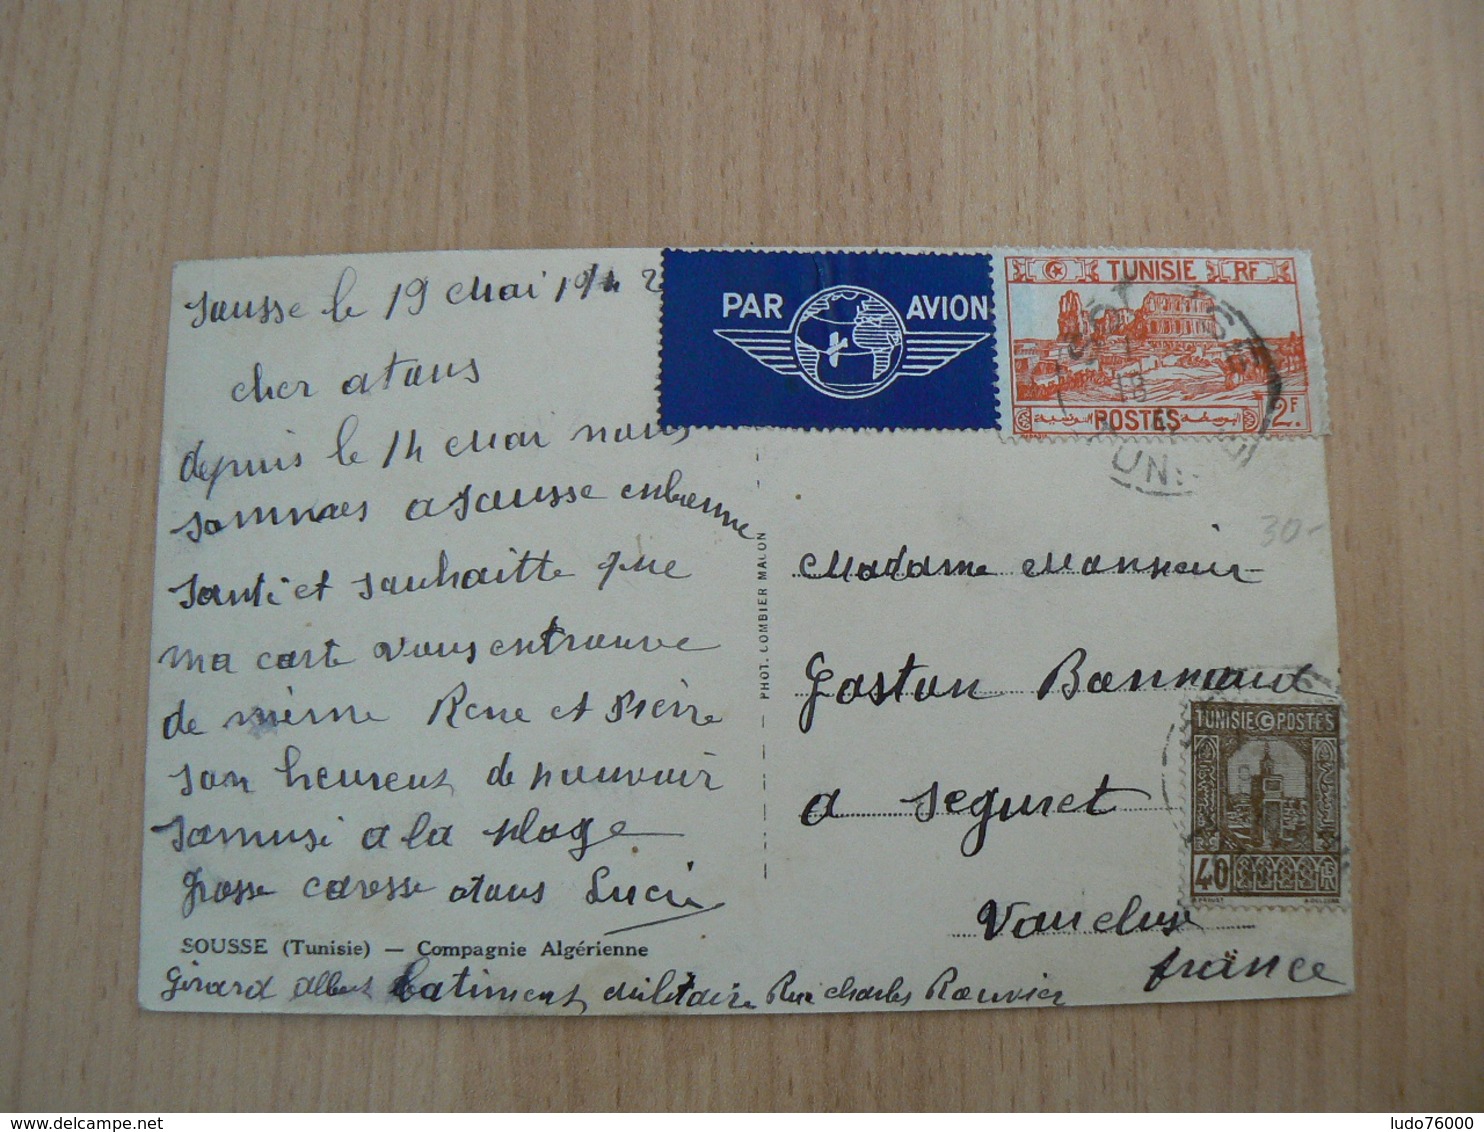 Sousse le 19 Mai 1942
cher atous
depuis le 14 Mai nous
sommes a Sousse enbonne
santi et souhaitte que
ma carte vous entrouve
de mème Rene et Pierre
son heureux de pouvoir
samusi a la plage
grosse caresse atous Lucie
SOUSSE (Tunisie) — Compagnie Algérienne
Girard Albert batiment militaire Rue Charles Rouvier
PHOT. COMBIER MACON
PAR AVION
TUNISIE RF
POSTES
2F.
30-
Madame Monsieur
Gaston Bonnaud
a Seguret
Vaucluse
france
TUNISIE POSTES
40
ludo76000